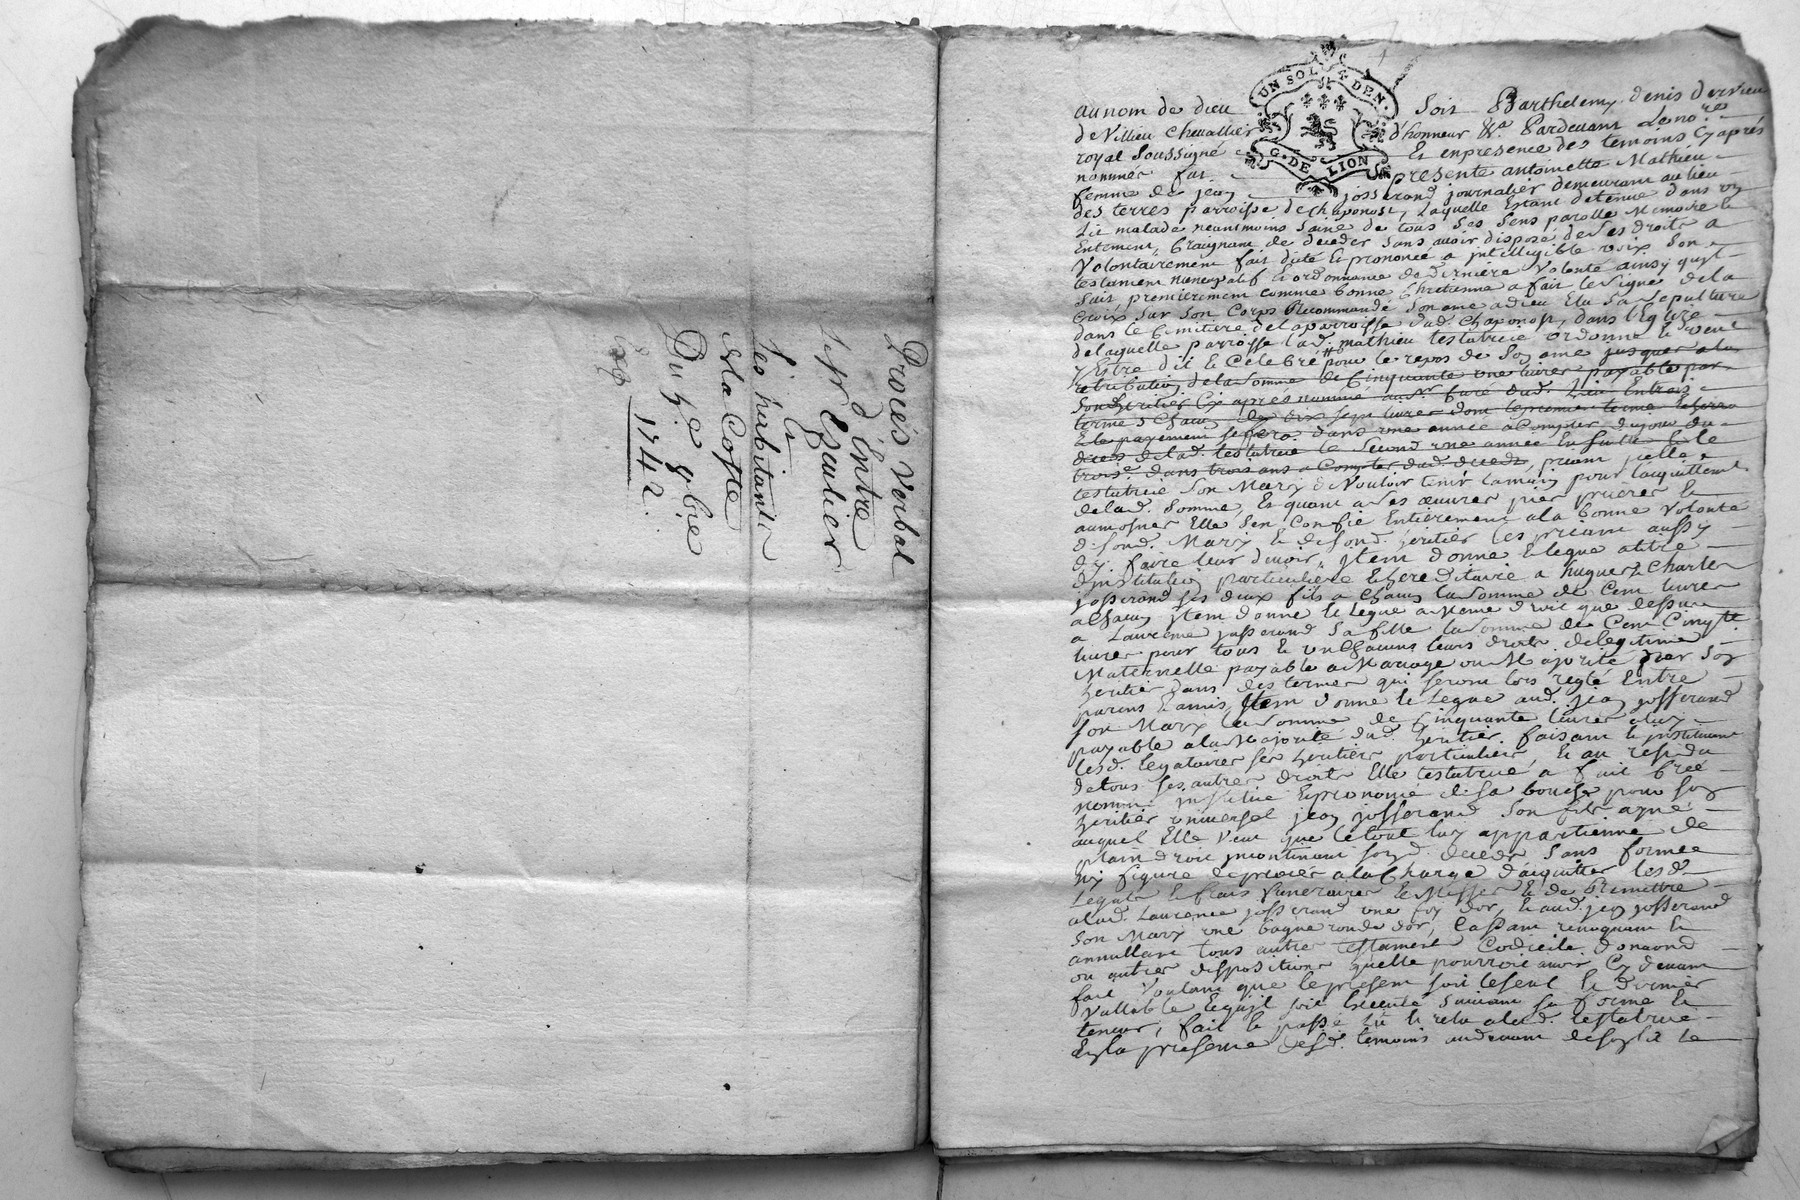 Procés Verbal
d'Entre
Sr Gaulier
&
Les habitants
de la Coste
Du 7e 9bre
1742.
UN SOL 4 DEN.
G. DE LION
au nom de dieu Soit Barthelemy denis dervieu
de Villieu Chevallier d'honneur &a Pardevant Le nore
royal soussigné Et en presence des temoins Cy aprés
nommés fut presente antoinette Mathieu
femme de jean josserand journalier demeurant au lieu
des terres parroisse de chaponost, Laquelle Estant detenue dans un
Lit malade neantmoins saine de tous ses sens parolle Memoire &
Entement, Craignant de deceder sans avoir disposé de ses droits a
Volontairement fait dicté & prononcé a intelligible voix son
testament nuncupatif & ordonnance de derniere Volonté ainsy quil
suit, premierement comme bonne Chretienne a fait le signe de la
Croix sur son Corps Recommandé son ame a dieu Elu sa sepulture
dans le Cimitiere de la parroisse dud. Chaponost, dans l'Eglise
de laquelle parroisse lad. mathieu testatrice ordonne & veut
Estre dit & Celebré pour le repos de son ame jusques a la
retribution de la somme de Cinquante une livres payable par
son heritier Cy apres nommé au Sr Curé dud. Lieu En trois
termes Chacun de dix sept livres dont le premier terme Echerra
& le payement se fera dans une année a Compter du jour du
deces de lad. testatrice le second une année En suitte & le
troise. dans trois ans a Compter dud. deceds, priant icelle
testatrice son Mary de Vouloir tenir la main pour l'acquittement
de lad. somme, Et quant a ses œuvres pies prieres &
aumosnes Elle s'en Confie Entierement a la bonne Volonté
de sond. Mary & de sond. heritier les priant aussy
d'y faire leur devoir, Item donne & legue a titre
d'institution particuliere & hereditaire a hugues & Charles
josserand ses deux fils a Chacun la somme de Cent livres
a Chacun Item donne & Legue au Meme droit que dessus
a Laurence josserand sa fille la somme de Cent Cinqte
livres pour tous & un Chacuns leurs droits de legitime
Maternelle payable a Mariage ou Majorité par son
heritier dans des termes qui seront lors reglé Entre
parens & amis, Item donne & Legue aud. jean josserand
son Mary la somme de Cinquante livres a luy
payable a la Majorité dud. heritier, faisant & instituant
lesd. legataires ses heritiers particuliers, & au residu
de tous ses autres droits Elle testatrice, a fait Créé
nommé institué & prononcé de sa bouche pour son
heritier universel jean josserand son fils ayné
auquel Elle veut que le tout luy appartienne de
plain droit incontinant sond. deceds sans forme
ny figure de procés a la Charge d'aquitter lesd.
Legats & frais funeraires & Messes & de Remettre
a lad. Laurence josserand une foy d'or, & aud. jean josserand
son Mary une bague ronde d'or, Cassant revoquant &
annullant tous autres testament Codicile donaond
ou autres dispositions quelle pourroit avoir Cy devant
fait Voulant que le present soit le seul & dernier
Vallable & quil soit Executé suivant sa forme &
teneur, fait & passé lu & relu a lad. testatrice
En la presence desd. temoins